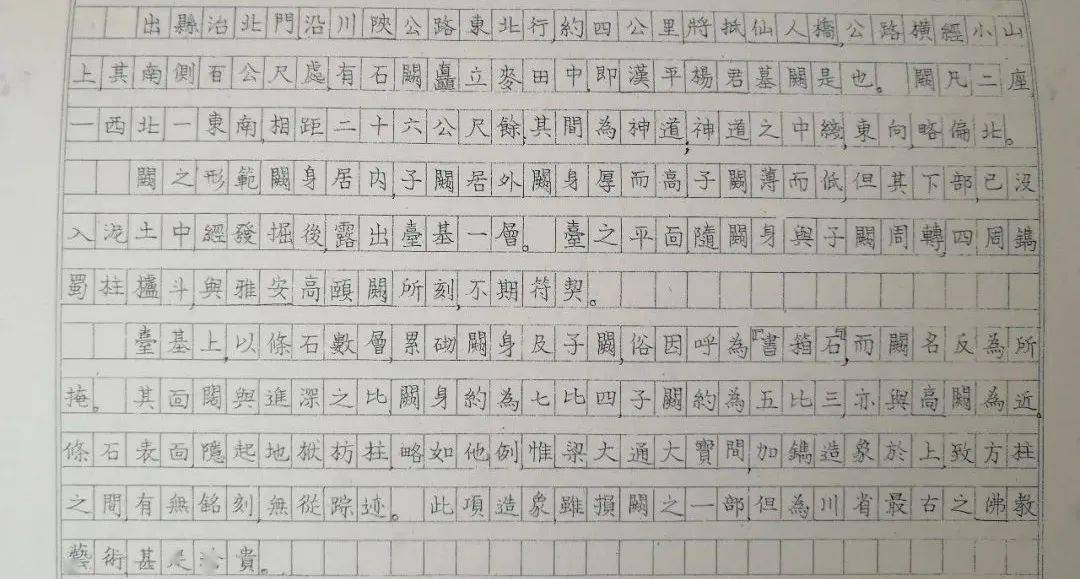 出縣治北門沿川陝公路東北行,約四公里將抵仙人橋,公路橫經小山
上,其南側百公尺處,有石闕矗立麥田中,即漢平楊君墓闕是也。闕凡二座,
一西北一東南,相距二十六公尺餘,其間為神道,神道之中綫,東向,略偏北。
闕之形範闕身居內,子闕居外闕身厚而高子闕薄而低,但其下部,已沒
入泥土中經發掘後,露出臺基一層。臺之平面隨闕身與子闕周轉,四周鐫
蜀柱櫨斗,與雅安高頤闕所刻,不期符契。
臺基上,以條石數層,累砌闕身及子闕,俗因呼為『書箱石』,而闕名反為所
掩。其面闊與進深之比,闕身約為七比四,子闕約為五比三,亦與高闕為近,
條石表面隱起地栿枋柱,略如他例,惟梁大通大寶間,加鐫造象於上,致方柱
之間有無銘刻無從踪迹。此項造象,雖損闕之一部,但為川省最古之佛教
藝術甚是珍貴。